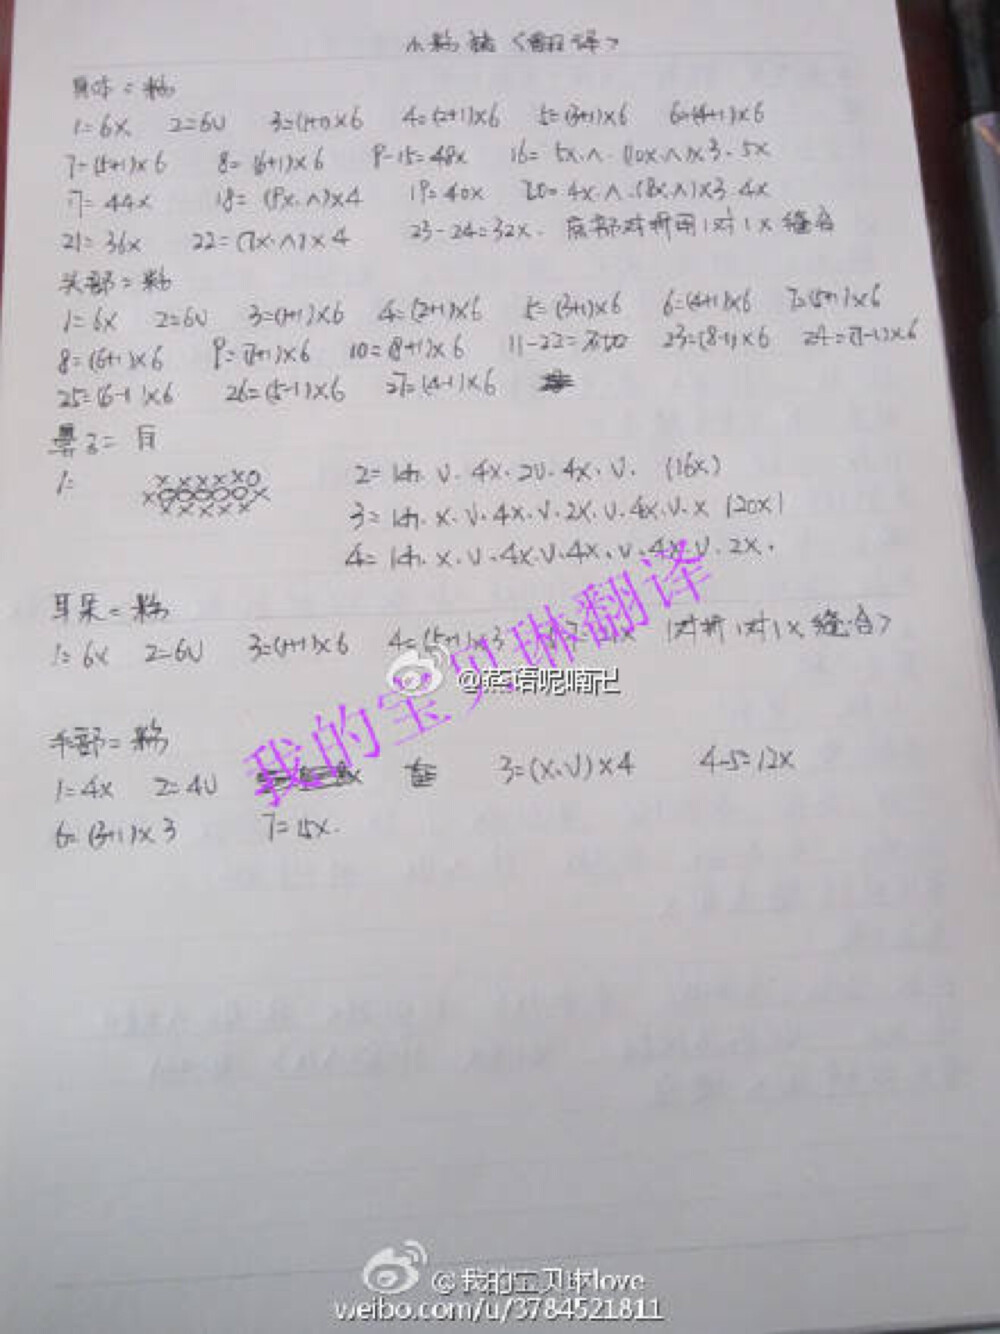 小粉猪〈翻译〉
身体=粉
1=6X 2=6V 3=(1+1)×6 4=(2+1)×6 5=(3+1)×6 6=(4+1)×6
7=(5+1)×6 8=(6+1)×6 9-15=48X 16= 5X.∧.(10X.∧)×3.5X
17=44X 18=(9X.∧)×4 19=40X 20=4X.∧.(8X.∧)×3.4X
21=36X 22=(7X.∧)×4 23-24=32X. 底部对折用1对1X缝合
头部=粉
1=6X 2=6V 3=(1+1)×6 4=(2+1)×6 5=(3+1)×6 6=(4+1)×6 7=(5+1)×6
8=(6+1)×6 9=(7+1)×6 10=(8+1)×6 11-22=不加 23=(8-1)×6 24=(7-1)×6
25=(6-1)×6 26=(5-1)×6 27=(4-1)×6
鼻子=白
1= XXXXXO
XOOOOOX
XXXXX
2=1ch.V.4X.2V.4X.V. (16X)
3=1ch.X.V.4X.V.2X.V.4X.V.X (20X)
4=1ch.X.V.4X.V.4X.V.4X.V.2X.
耳朵=粉
1=6X 2=6V 3=(1+1)×6 4=(5+1)×3 (对折1对1X缝合)
手部=粉
1=4X 2=4V 3=(X.V)×4 4-5=12X
6=(3+1)×3 7=15X.
我的宝贝琳翻译
@燕语呢喃卍
@我的宝贝琳love
weibo.com/u/3784521811